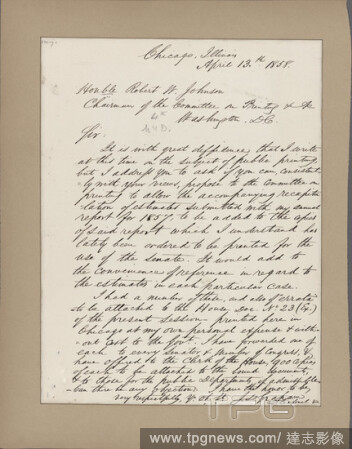 Chicago, Illinois
April 13.th 1858.
Honble Robert W. Johnson
Chairman of the Committee on Printing &
Washington D.C.
Sir.
It is with great defference, that I write
at this time on the subject of public printing,
but I address you to ask if you can, consistent-
ly with your views, propose to the Committee on
printing to allow the accompanying recapitu-
lation of estimates submitted with my annual
report for 1857, to be added to the copies
of said report which I understand has
lately been ordered to be printed for the
use of the Senate. It would add to
the convenience of reference in regard to
the estimates in each particular case.
I had a number of these, and also of errata
to be attached to the House Doc. No 23 (Ex.)
of the present session - printed here in
Chicago at my own personal expense & with-
out cost to the Govt. I have forwarded one of
each to every Senator & Member of Congress, &
have offered to the Clerk of the House, 900 copies
of each to be attached to the bound document,
& to those for the public Departments, if admissible
can there be any objection. I have the honor to be,
very respectfully yr obt. st.
TPG
www.tpgnews.com / 達志影像